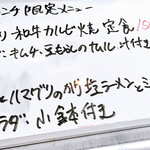 ンチ限定メニュー
和牛カルビ焼定食
キムチ・豆もやしのナムル 汁付き
ハマグリの 塩ラーメンとミ
ラダ 小鉢付き